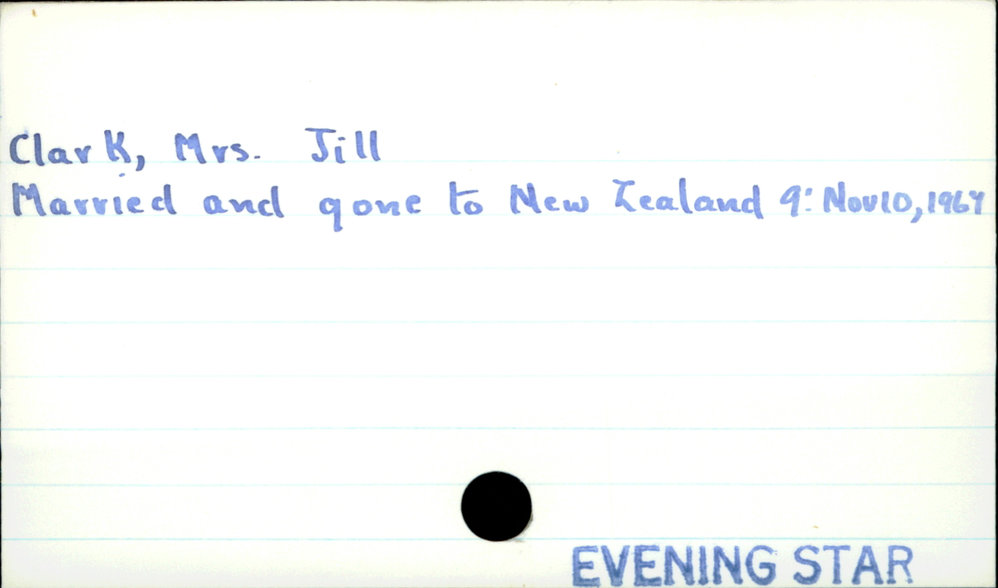 Clark, Mrs. Jill
Married and gone to New Zealand 9: Nov10, 1967
EVENING STAR